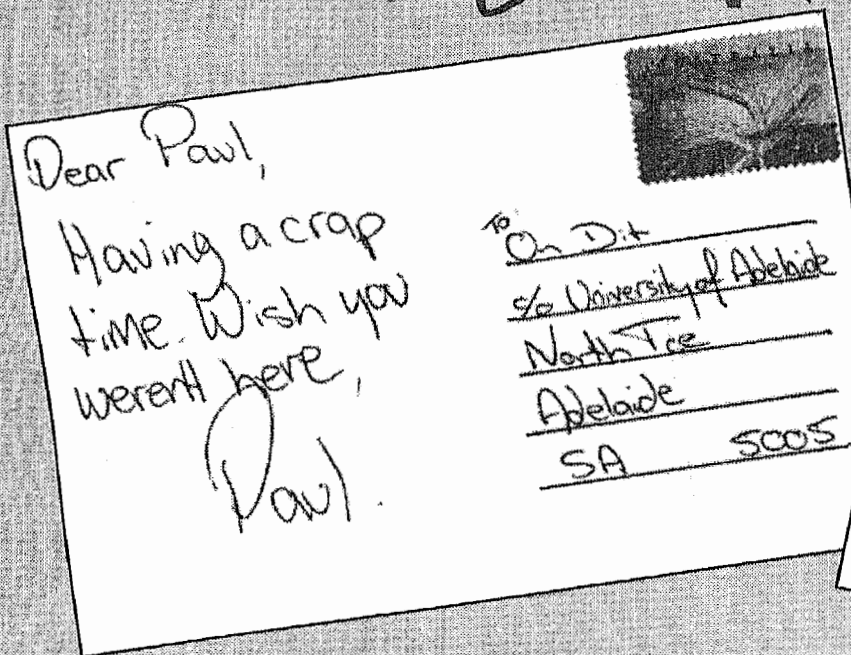 Dear Paul,
Having a crap
time. Wish you
weren't here,
Paul.
To
On Dit
c/o University of Adelaide
North Tce
Adelaide
SA 5005